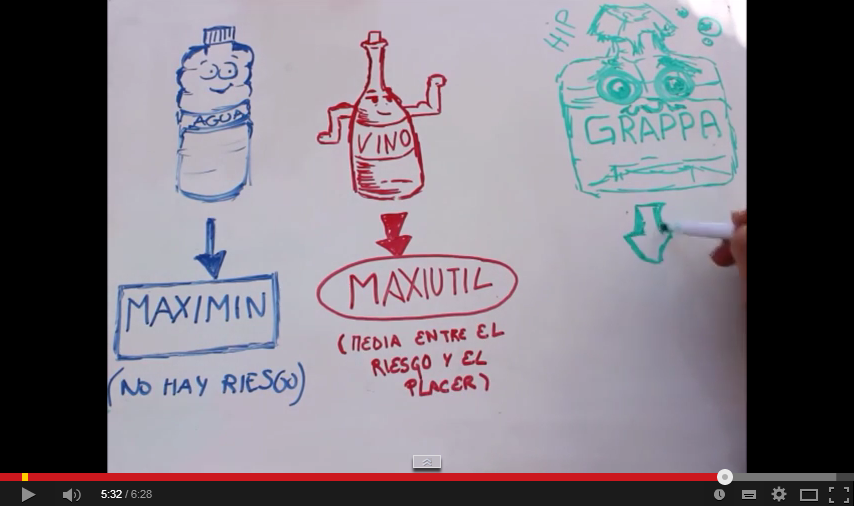 AGUA
VINO
HIP
GRAPPA
MAXIMIN
(NO HAY RIESGO)
MAXIUTIL
(MEDIA ENTRE EL
RIESGO Y EL
PLACER)
5:32 / 6:28